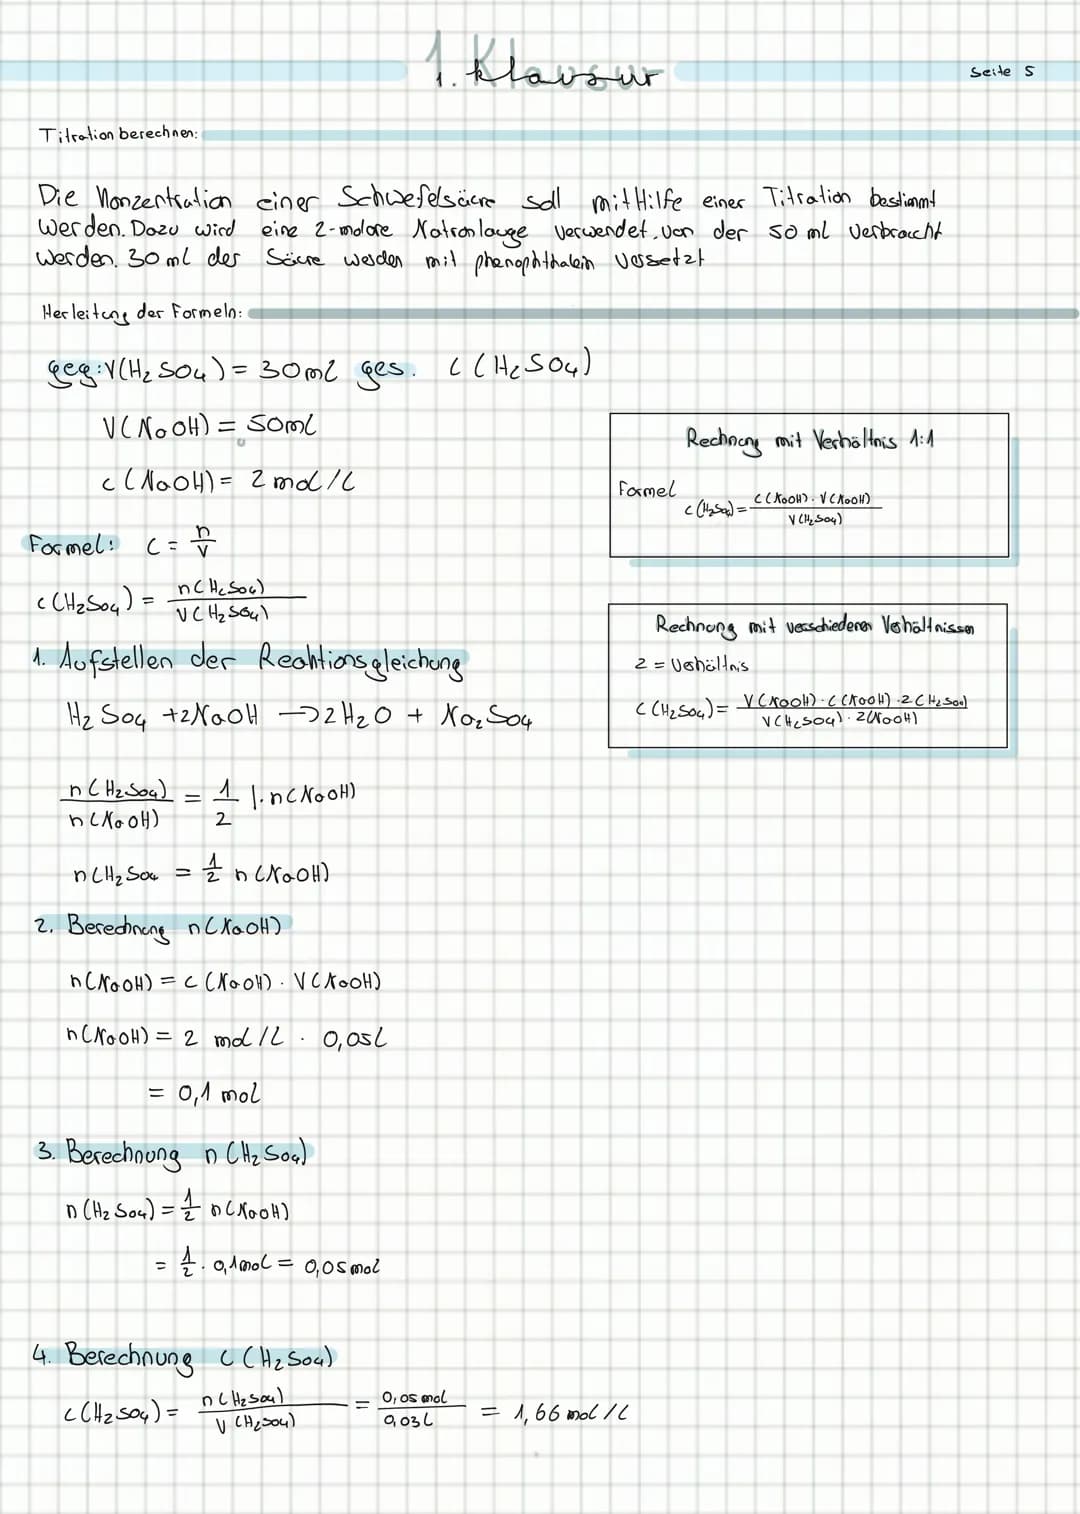 1. Klausur
Seite 5
Titration berechnen:
Die Konzentration einer Schwefelsäure soll mit Hilfe einer Titration bestimmt
werden. Dazu wird eine 2-molare Natronlauge verwendet, von der 50 ml verbraucht
werden. 30 ml der Säure werden mit phenophthalein versetzt
Herleitung der Formeln:
geg: V(H₂SO₄) = 30ml ges. c(H₂SO₄)
V(NaOH) = 50ml
c(NaOH) = 2 mol/L
Formel: c = n/V
c(H₂SO₄) = n(H₂SO₄)/V(H₂SO₄)
1. Aufstellen der Reaktionsgleichung
H₂SO₄ + 2NaOH → 2H₂O + Na₂SO₄
n(H₂SO₄)/n(NaOH) = 1/2 |· n(NaOH)
n(H₂SO₄ = 1/2 n(NaOH)
2. Berechnung n(NaOH)
n(NaOH) = c(NaOH) · V(NaOH)
n(NaOH) = 2 mol/L · 0,05L
= 0,1 mol
3. Berechnung n(H₂SO₄)
n(H₂SO₄) = 1/2 n(NaOH)
= 1/2 · 0,1mol = 0,05mol
4. Berechnung c(H₂SO₄)
c(H₂SO₄) = n(H₂SO₄)/V(H₂SO₄) = 0,05 mol/0,03L = 1,66 mol/L
Rechnung mit Verhältnis 1:1
Formel
c(H₂SO₄) = c(NaOH) · V(NaOH)/V(H₂SO₄)
Rechnung mit verschiedenen Verhältnissen
z = Verhältnis
c(H₂SO₄) = V(NaOH) · c(NaOH) · z(H₂SO₄)/V(H₂SO₄) · z(NaOH)